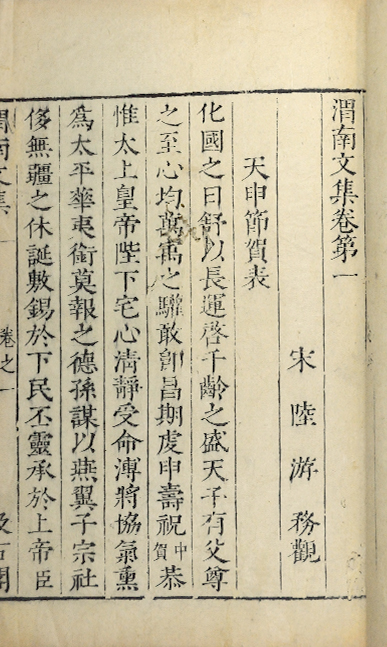 渭南文集卷第一
宋 陸 游 務觀
天申節賀表
化國之日舒以長運啓千齡之盛天子有父尊
之至心均萬㝢之驩敢卽昌期虔申壽祝中賀恭
惟太上皇帝陛下宅心清靜受命溥將協氣熏
爲太平華夷銜莫報之德孫謀以燕翼子宗社
侈無疆之休誕敷錫於下民丕靈承於上帝臣
渭南文集 卷之一 汲古閣